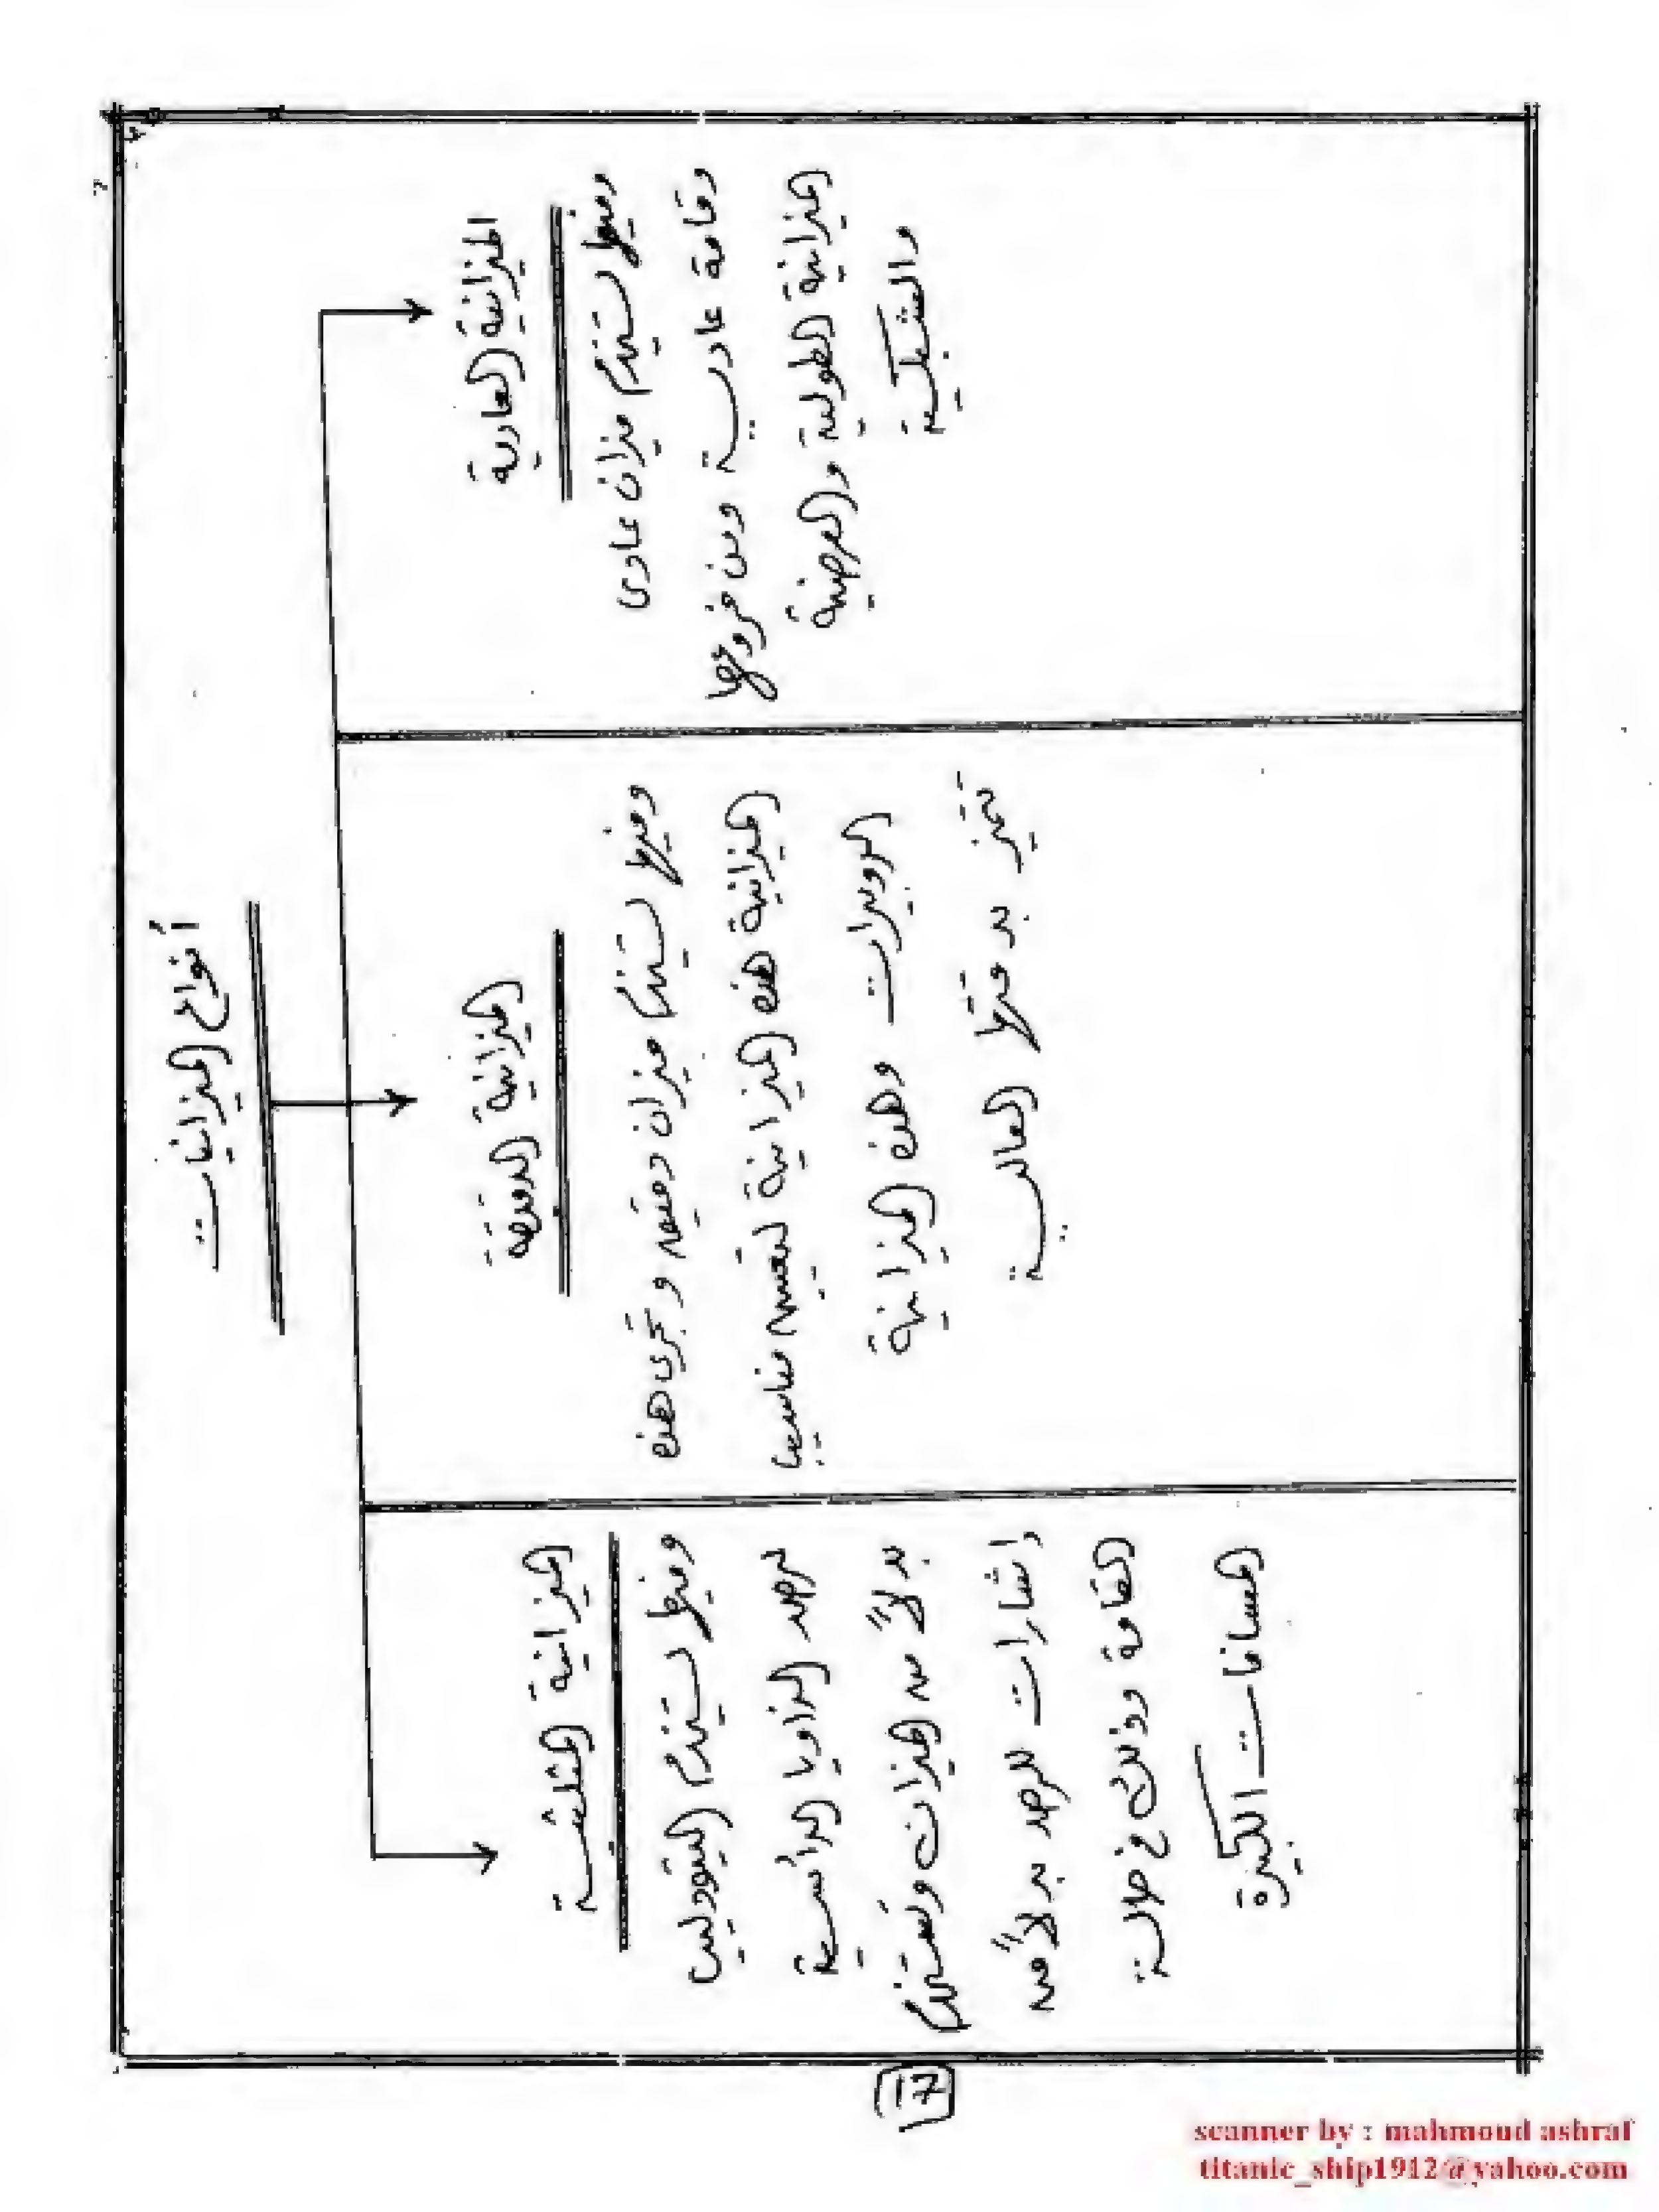 أنواع الميزانيات
الميزانية العادية
وفيها نستخدم ميزان عادى
وقامة عادية ومن فروعها
الميزانية الطولية والعرضية
والشبكية
الميزانية الدقيقة
وفيها نستخدم ميزان دقيق وتجرى هذه
الميزانية هذه الميزانية لتعيين مناسيب
الروبيرات وهذه الميزانية
تتميز بدقتها العالية
الميزانية المثلثية
وفيها نستخدم التيودليت
لرصد الزاويا الرأسية
بدلاً من الميزان ونستخدم
اشارات للرصد بدلاً من
القامة وذلك فى حالة
المسافات الكبيرة
17
scanner by : mahmoud ashraf
titanic_ship1912@yahoo.com